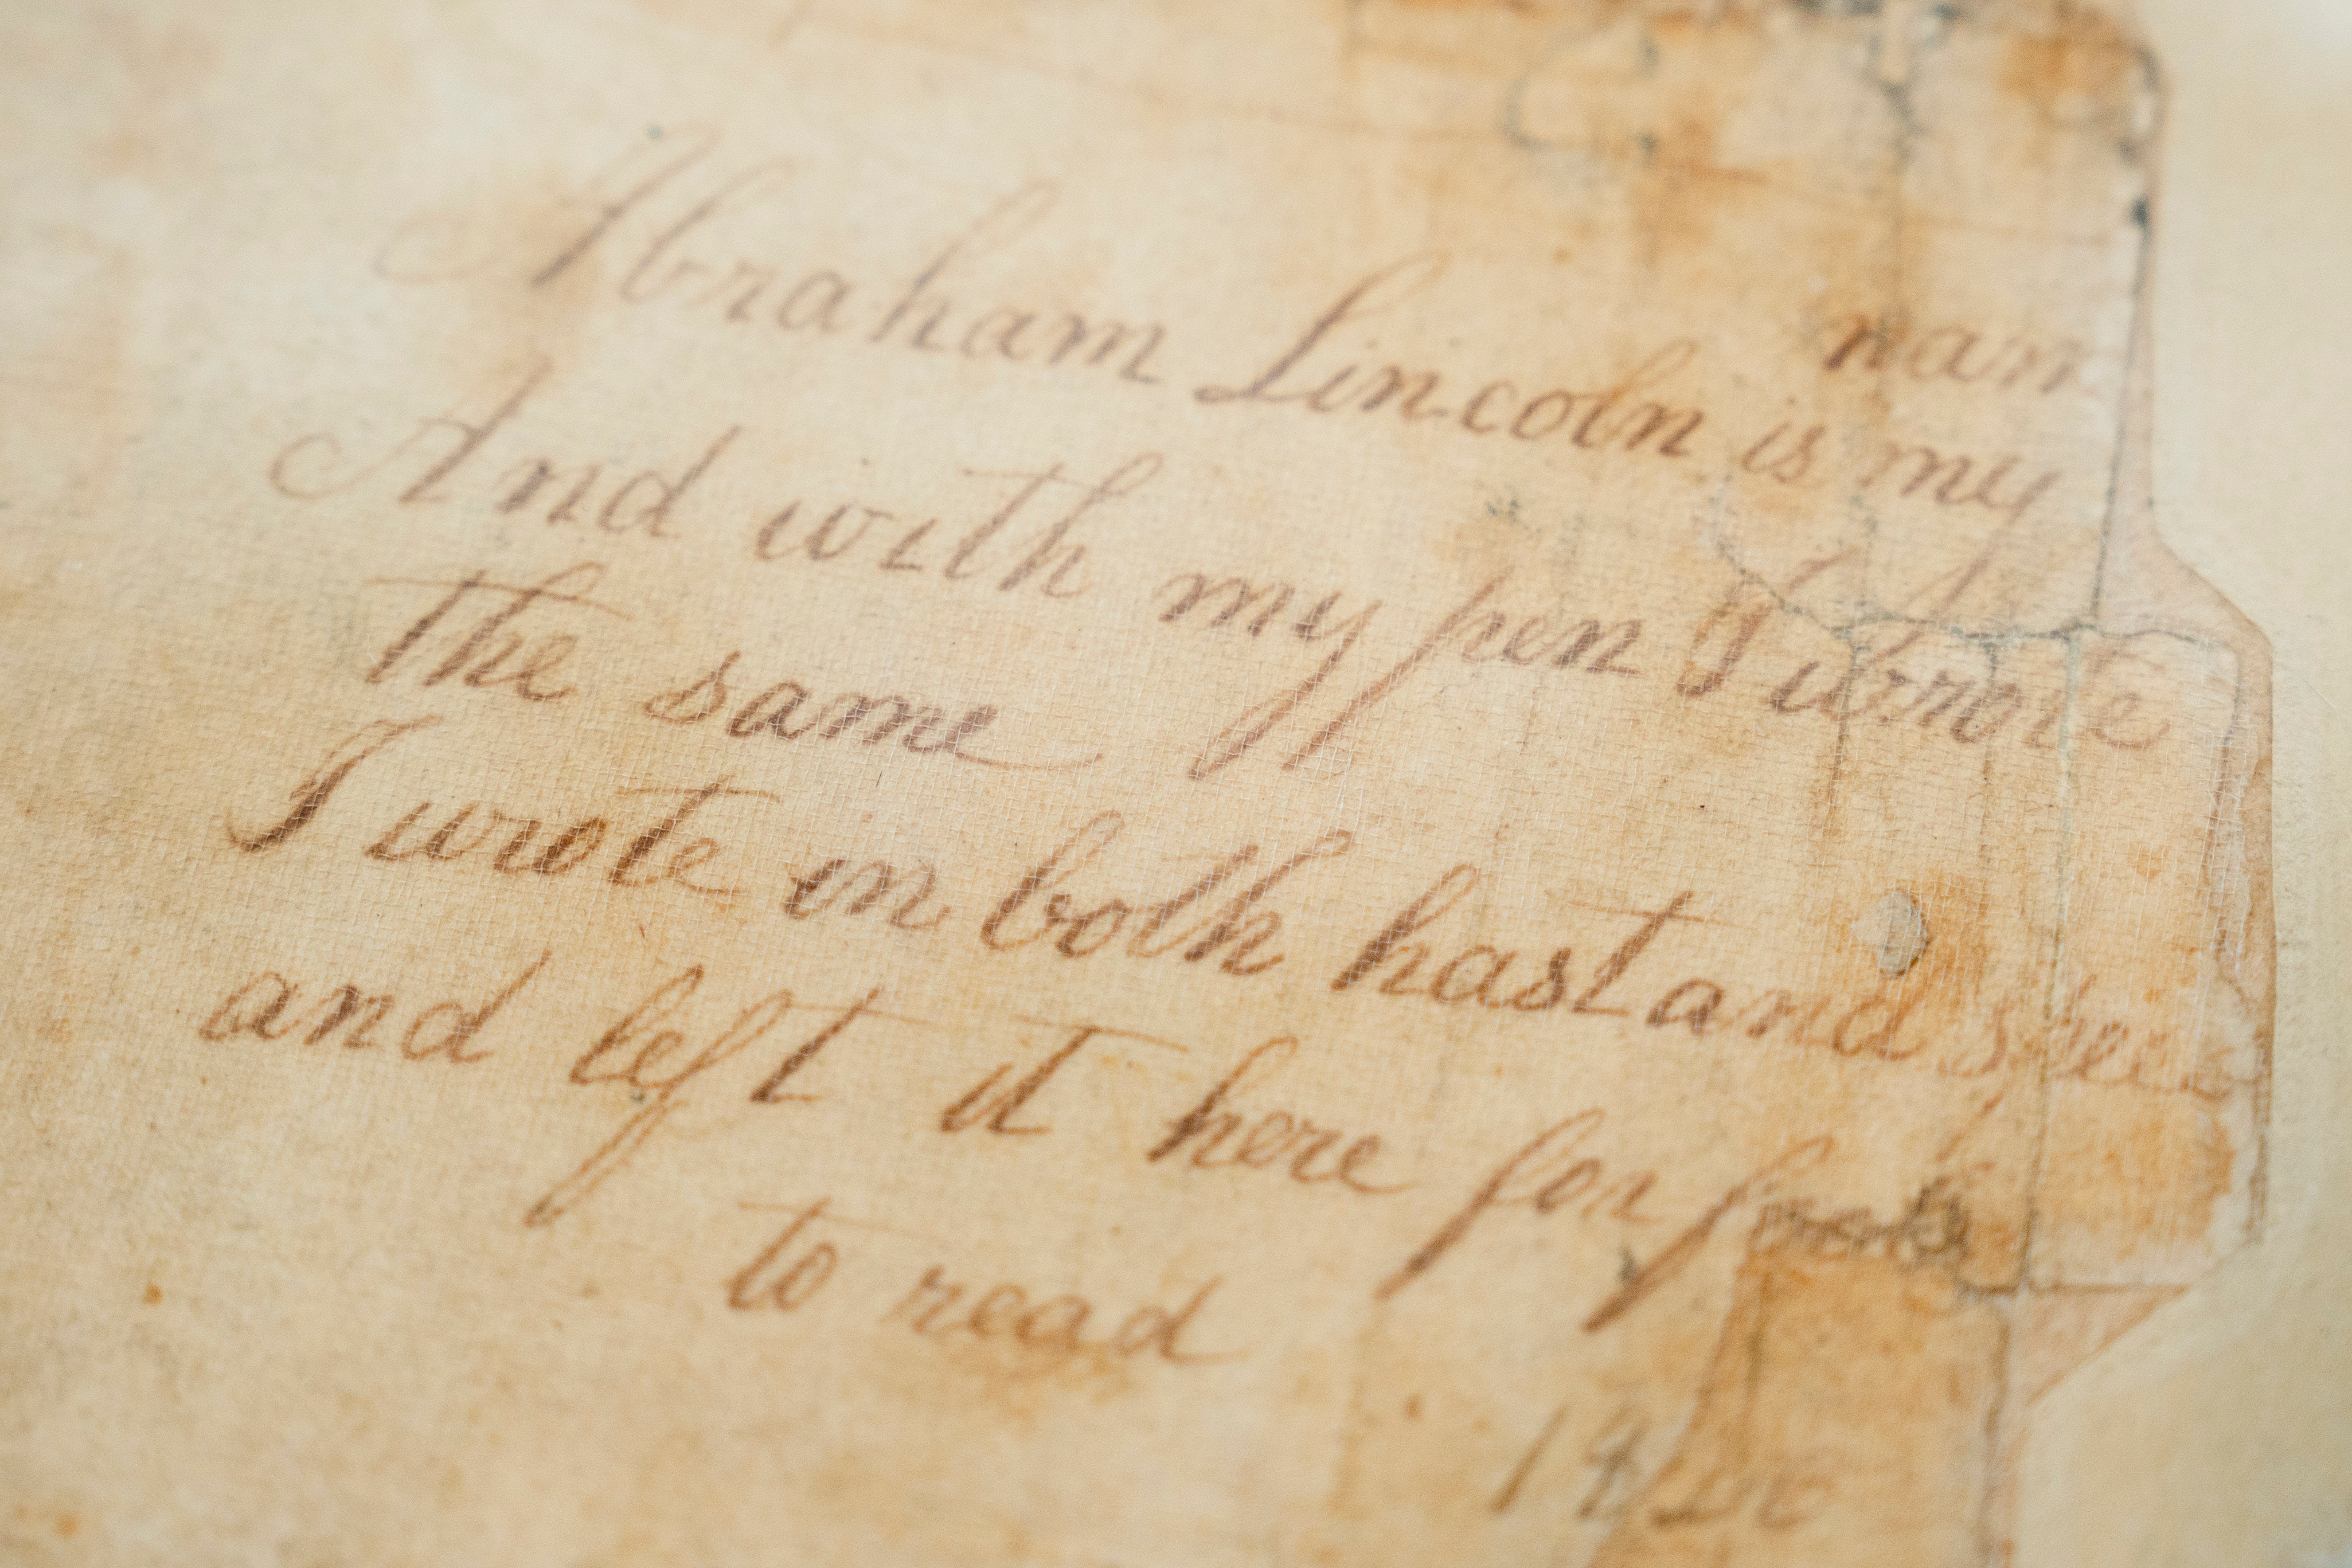 nam
Abraham Lincoln is my
And with my pen I wrote
the same
I wrote in both hast and
and left it here for fools
to read